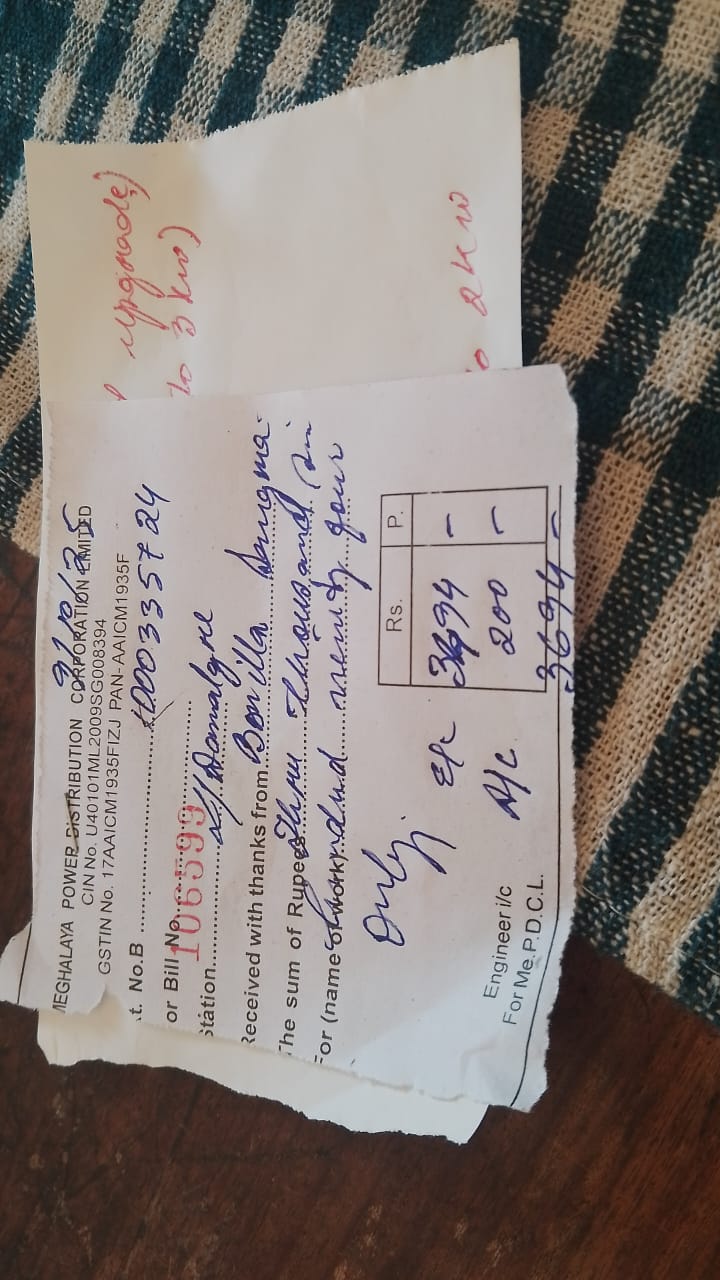 upgrade)
to 3 kw)
2 kw
9/10/25
MEGHALAYA POWER DISTRIBUTION CORPORATION LIMITED
CIN No. U40101ML2009SG008394
GSTIN No. 17AAICM1935FIZJ PAN-AAICM1935F
t. No.B
or Bill No. 106599
Station
Received with thanks from Bonilla Sangma
The sum of Rupees Three thousand Six
For (name of work) hundred ninety four
Only
Rs. P.
E/c 3494 –
A/c 200 –
3694 –
Engineer i/c
For Me.P.D.C.L.